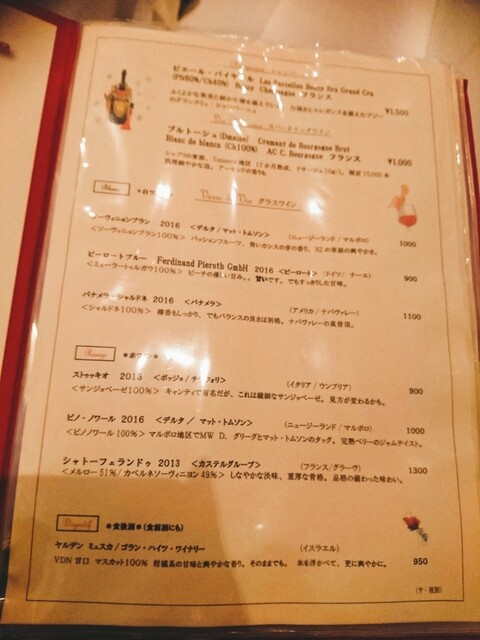 ピエール・パイヤール Les Parcelles Bouzy Bru Grand Cru
(PN60%/Ch40%) Bouzy Champagne フランス
¥1,500
スパークリングワイン
ブルトーシュ(Dmaine) Cremant de Bourgogne Brut
Blanc de blancs (Ch100%) AC C. Bourgogne フランス ¥1,000
Blanc Verre de Vin グラスワイン
ソーヴィニョンブラン 2016 <デルタ/マット・トムソン> (ニュージーランド/マルボロ) 1000
<ソーヴィニヨンブラン100%> パッションフルーツ、青いカシスの芽の香り、NZの草原の爽やかさ。
ピーロートブルー Ferdinand Pieroth GmbH 2016 <ピーロート> (ドイツ/ ナーエ) 900
<ミューラートゥルガウ100%> ピーチの優しい甘み。。甘いです。でもすっきりした甘味。
パナメラ・シャルドネ 2016 <パナメラ> (アメリカ/ナパヴァレー) 1100
<シャルドネ100%> 樽香もしっかり、でもバランスの良さは別格。ナパヴァレーの真骨頂。
Rouge *赤ワイン*
ストゥッキオ 2013 (イタリア/ウンブリア) 900
<サンジョベーゼ100%> キャンティで有名だが、これは繊細なサンジョベーゼ。見方が変わるかも。
ピノ・ノワール 2016 <デルタ / マット・トムソン> (ニュージーランド/マルボロ) 1000
<ピノノワール 100%> マルボロ地区でMW D. グリーグとマット・トムソンのタッグ。完熟ベリーのジャムテイスト。
シャトーフェランドゥ 2013 <カステルグループ> (フランス/グラーヴ) 1300
<メルロー51%/カベルネソーヴィニヨン49%> しなやかな渋味、重厚な骨格。品格の備わった味わい。
Digestif *食後酒*(食前酒にも)
ヤルデン ミュスカ/ゴラン・ハイツ・ワイナリー (イスラエル)
VDN 甘口 マスカット100% 柑橘系の甘味と爽やかな香り。そのままでも。氷を浮かべて、更に爽やかに。 950
(サ・税別)